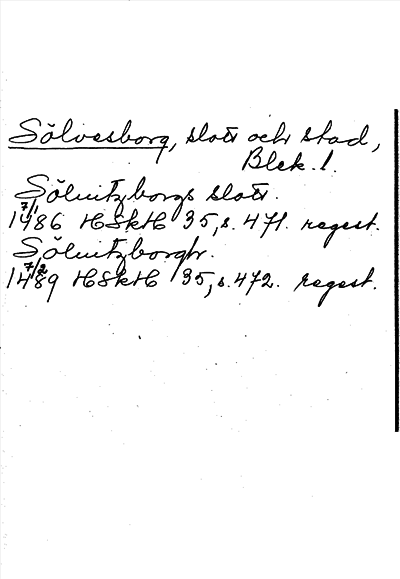 Sölvesborg, slott och stad,
Blek. l.
Söluitzborgs slott.
7/1
1486 HSkH 35, s. 471. regest.
Söluitzborgh.
7/2
1489 HSkH 35, s. 472. regest.